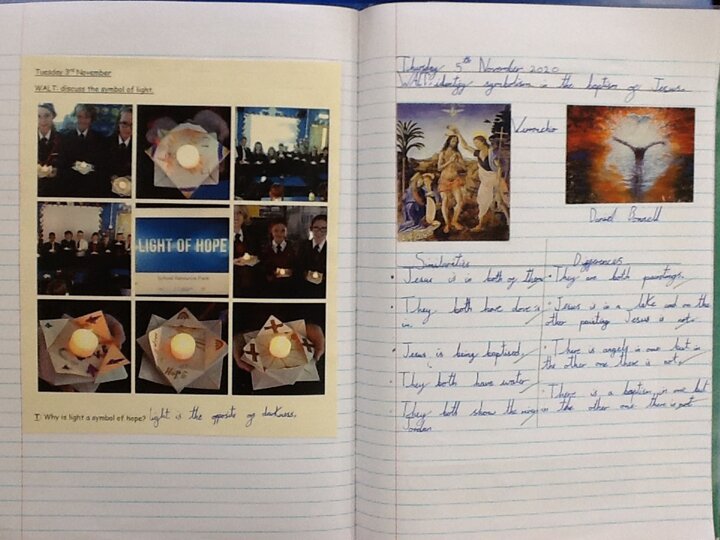 Tuesday 3rd November
WALT: discuss the symbol of light.
LIGHT OF HOPE
I: Why is light a symbol of hope? Light is the opposite of darkness.
Thursday 5th November 2020
WALT: identify symbolism in the baptism of Jesus.
Verrocchio
Daniel Bonnell
Similarities
Jesus is in both of them
They both have doves
in.
Jesus is being baptised
They both have water
They both show the river
Jordan
Differences
They are both paintings.
Jesus is in a lake and on the
other painting Jesus is not.
There is angels in one but in
the other one there is not
There is a baptism in one but
in the other one there is not